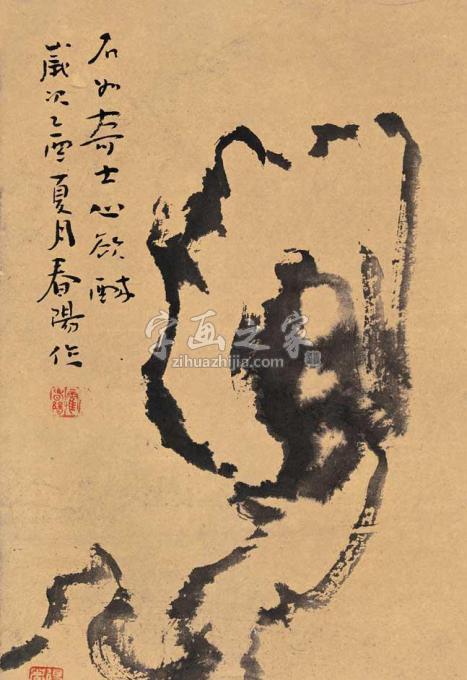 石如奇士心欲酥
歲次乙酉夏月春陽作
字画之家
zihuazhijia.com